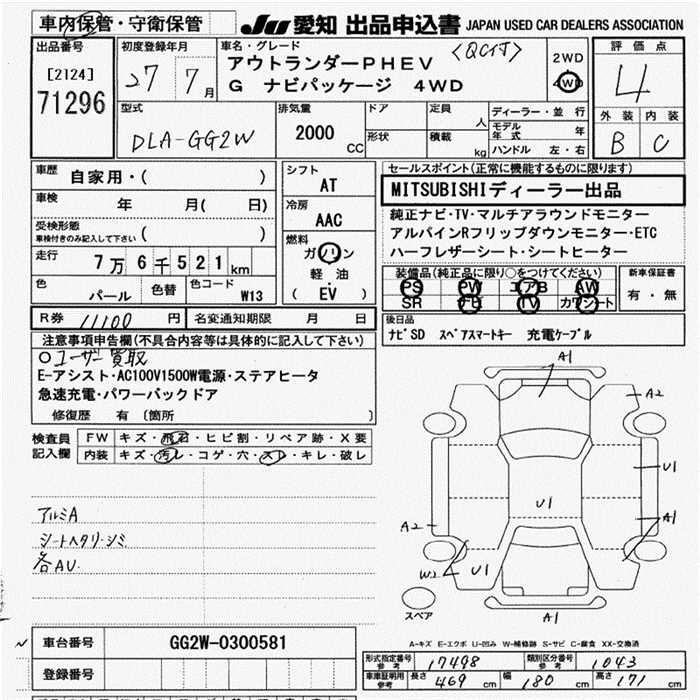 車内保管・守衛保管
JU 愛知 出品申込書 JAPAN USED CAR DEALERS ASSOCIATION
出品番号
[2124]
71296
初度登録年月
27 7月
車名・グレード
アウトランダーPHEV
G ナビパッケージ 4WD
2WD
4WD
評価点
4
外装 内装
B C
型式
DLA-GG2W
排気量
2000 cc
ドア
形状
定員 人
積載 kg
ディーラー・並行
モデル年式 年
ハンドル 左・右
車歴 自家用・( )
車検 年 月( 日)
受検形態
車検付きのみ記入して下さい ( )
走行 7万6千521km
色 パール 色替 色コード W13
シフト
AT
冷房
AAC
燃料
ガソリン
軽油
( EV )
セールスポイント(正常に機能するものに限ります)
MITSUBISHIディーラー出品
純正ナビ・TV・マルチアラウンドモニター
アルパインRフリップダウンモニター・ETC
ハーフレザーシート・シートヒーター
装備品(純正品に限り○をつけてください)
PS PW エアB AW
SR ナビ TV カワシート
新車保証書
有・無
後日品
ナビSD スペアスマートキー 充電ケーブル
R券 11100 円 名変通知期限 月 日
注意事項申告欄(不具合内容等は具体的に記入して下さい)
○ユーザー買取
E-アシスト・AC100V1500W電源・ステアヒータ
急速充電・パワーバックドア
修復歴 有 [箇所 ]
検査員記入欄
FW キズ・飛石・ヒビ割・リペア跡・X要
内装 キズ・汚レ・コゲ・穴・スレ・キレ・破レ
アルミA
シートヘタリ・シミ
各AU
A1
A2
U1
U1
A1
A2
W2
U1
A1
スペア
A-キズ E-エクボ U-凹み W-補修跡 S-サビ C-腐食 XX-交換済
車台番号 GG2W-0300581
登録番号
形式指定番号 参考 17498 類別区分番号 参考 1043
車庫証明用 参考 長さ 469 cm 幅 180 cm 高さ 171 cm